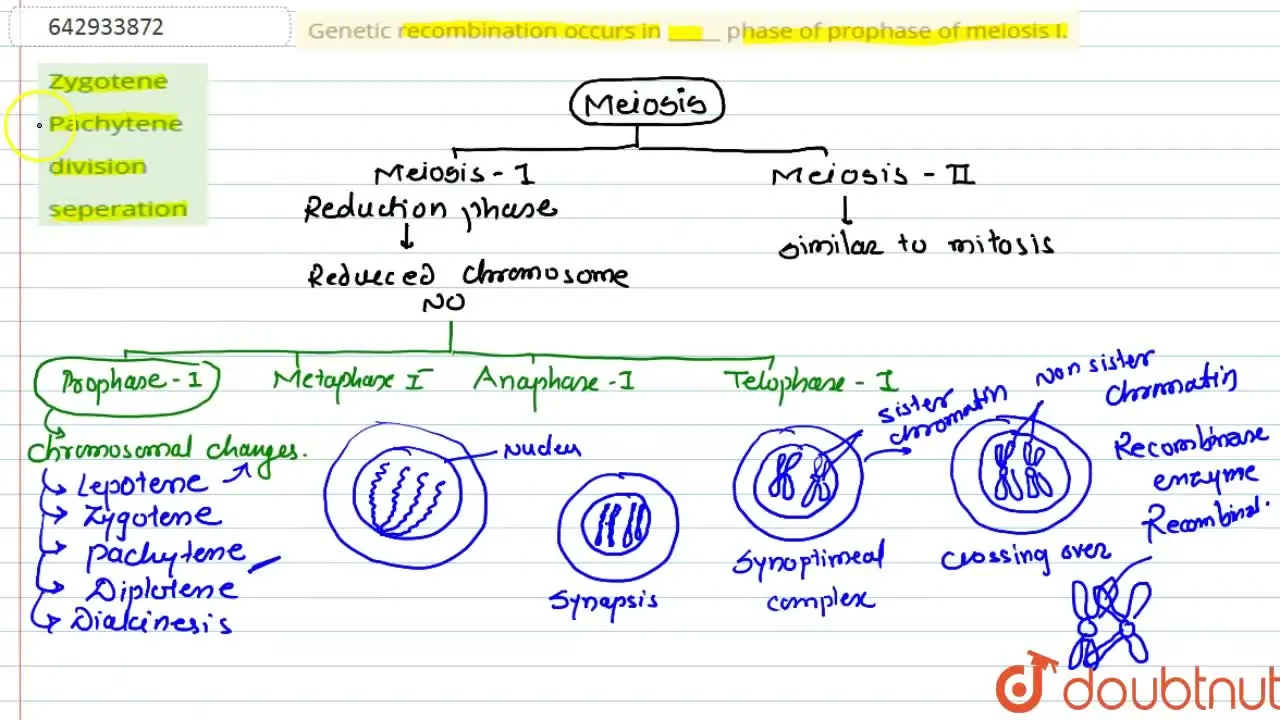 642933872
Genetic recombination occurs in _____ phase of prophase of meiosis I.
Zygotene
Pachytene
division
seperation
Meiosis
Meiosis - I
Meiosis - II
Reduction phase
similar to mitosis
Reduced chromosome
NO
Prophase - I
Metaphase I
Anaphase - I
Telophase - I
chromosomal changes.
Lepotene
Zygotene
Pachytene
Diplotene
Diakinesis
Nuclei
Synapsis
sister
chromatin
Synoptimeal
complex
Non sister
chromatin
Crossing over
Recombinase
enzyme
doubtnut